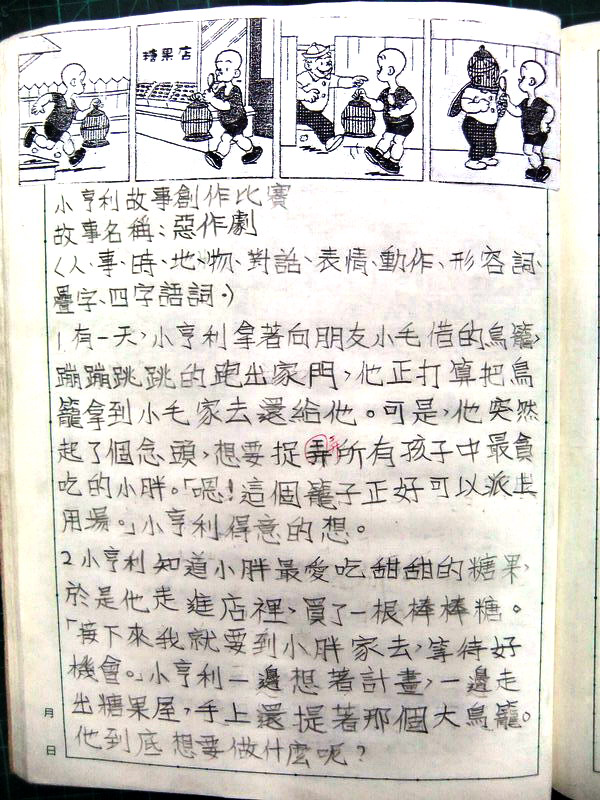 糖果店
小亨利故事創作比賽
故事名稱:惡作劇
(人、事、時、地、物、對話、表情、動作、形容詞、
疊字、四字語詞。)
1有一天,小亨利拿著向朋友小毛借的鳥籠,
蹦蹦跳跳的跑出家門,他正打算把鳥
籠拿到小毛家去還給他。可是,他突然
起了個念頭,想要捉弄所有孩子中最貪
吃的小胖。「嗯!這個籠子正好可以派上
用場。」小亨利得意的想。
2小亨利知道小胖最愛吃甜甜的糖果,
於是他走進店裡,買了一根棒棒糖。
「接下來我就要到小胖家去,等待好
機會。」小亨利一邊想著計畫,一邊走
出糖果屋,手上還提著那個大鳥籠。
他到底想要做什麼呢?
月
日